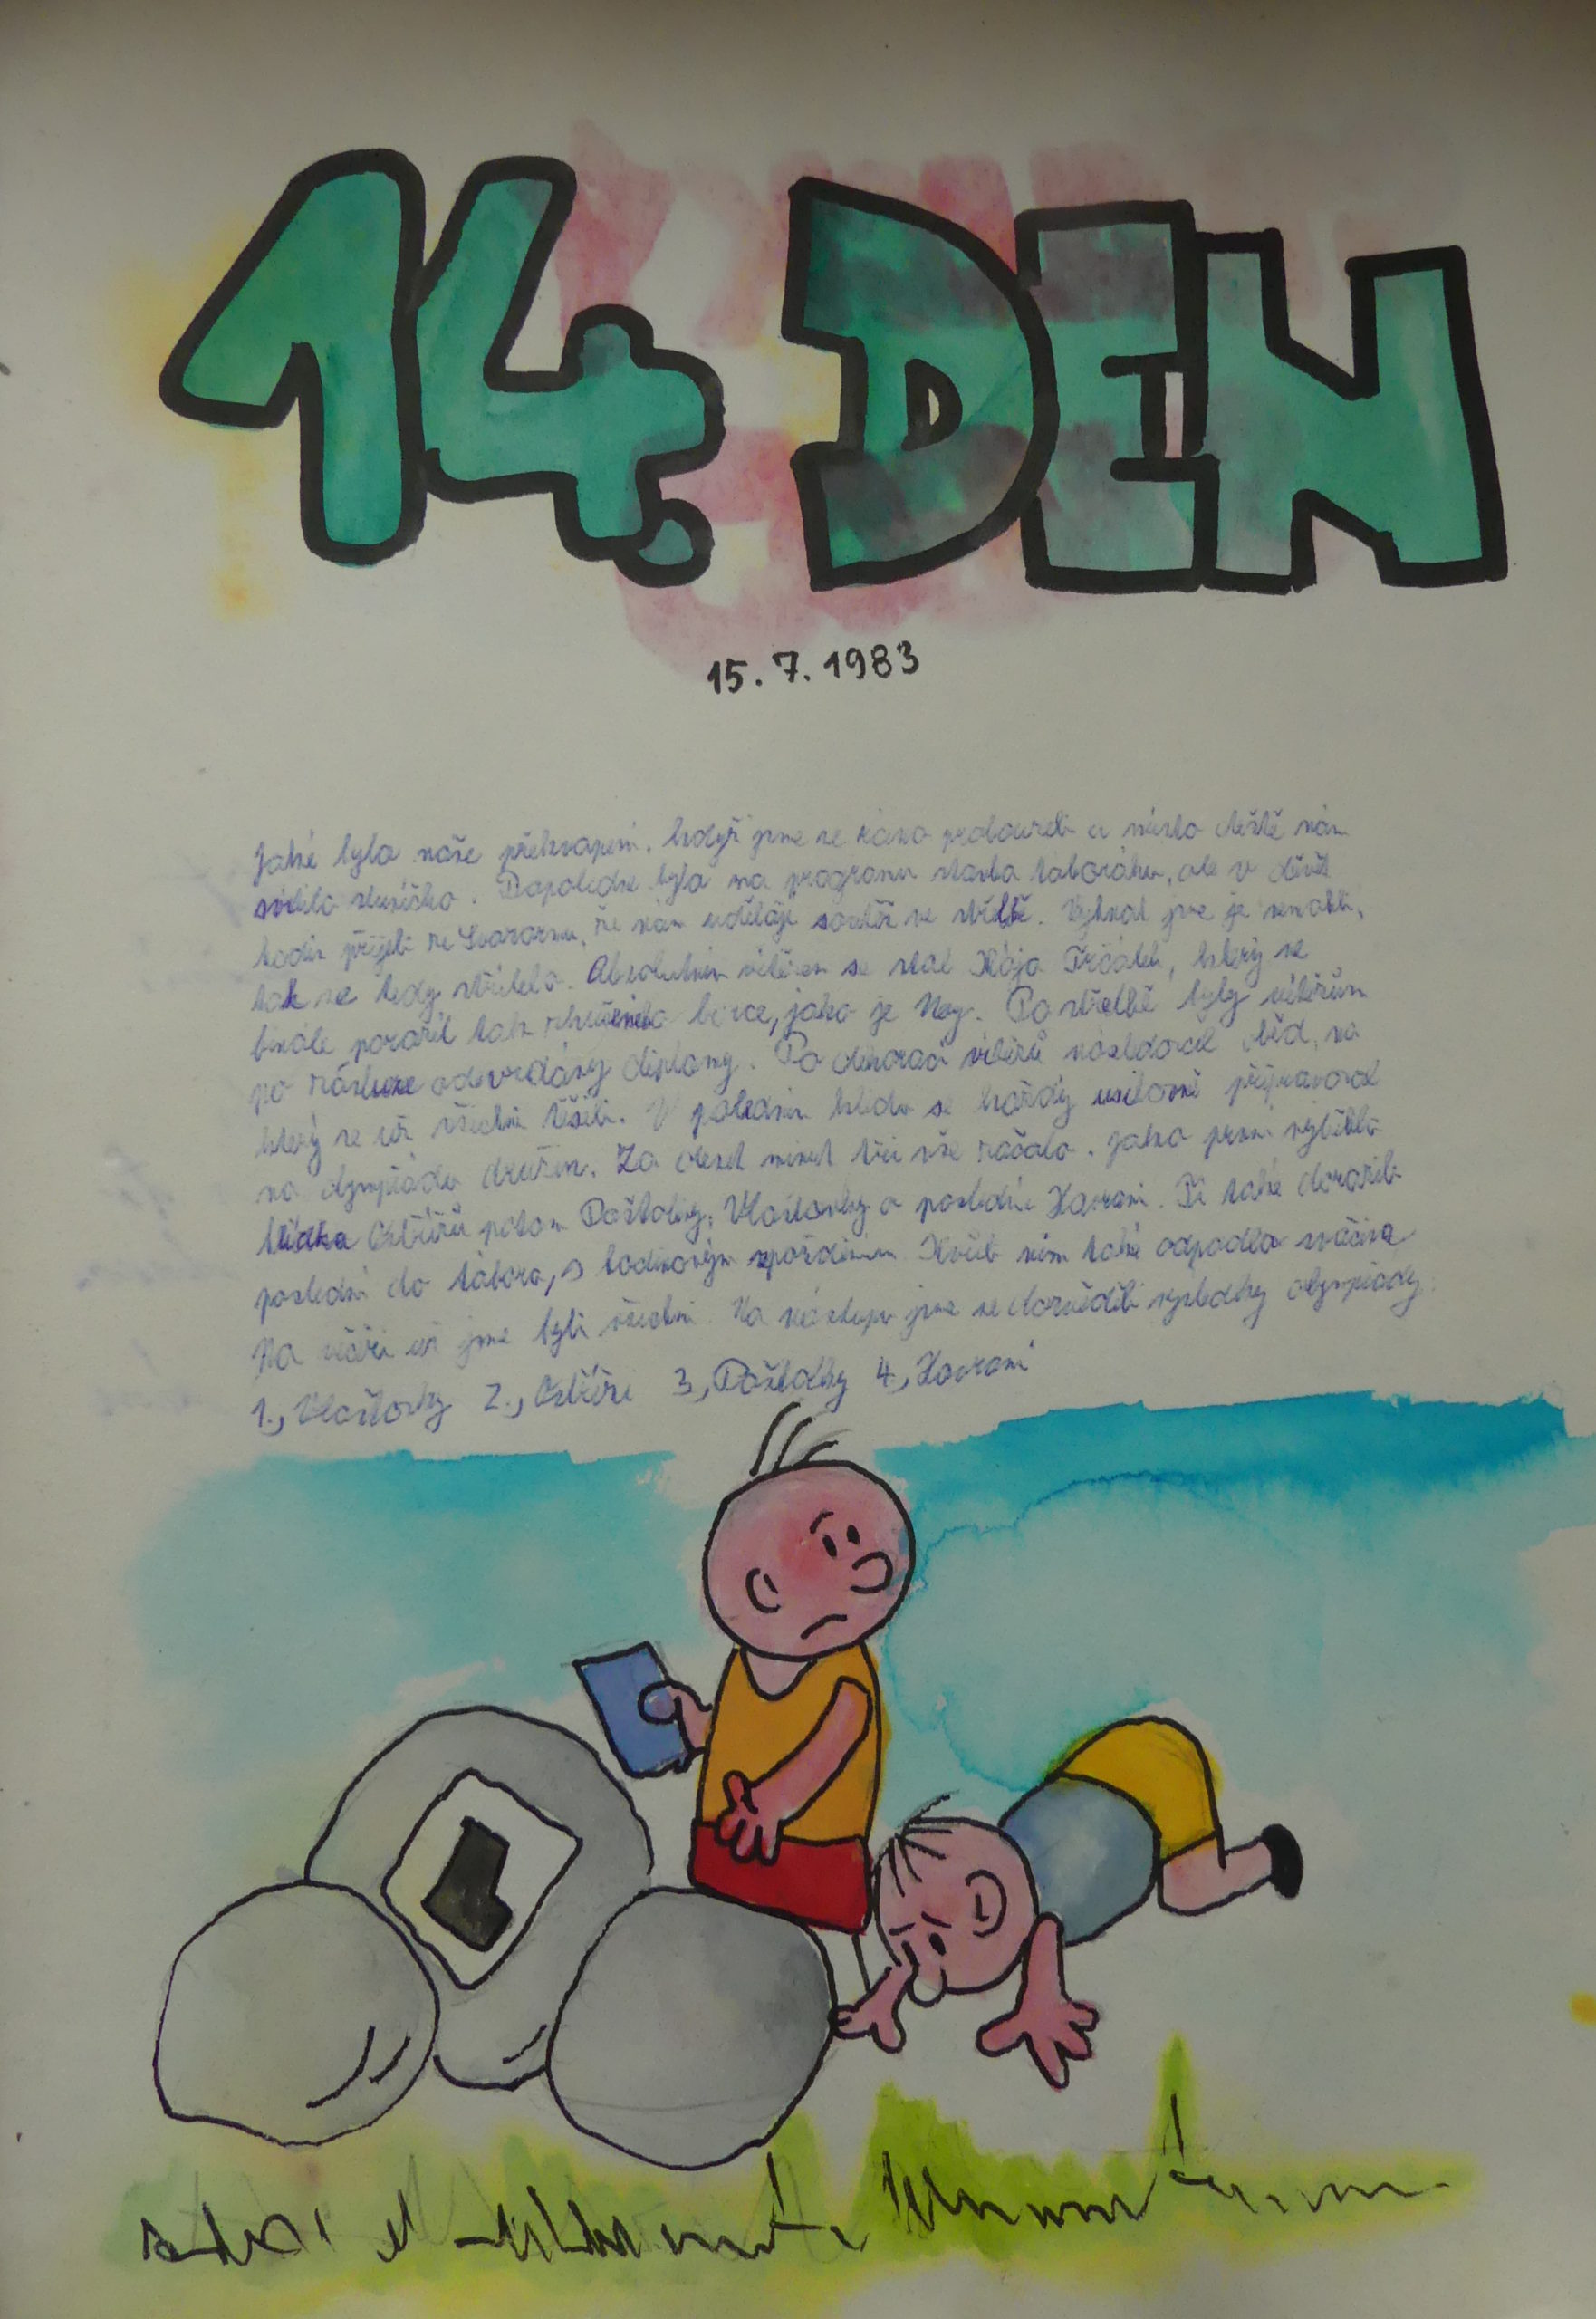 14. DEN
15. 7. 1983
Jaké bylo naše překvapení, když jsme se ráno probudili a místo deště nám
svítilo sluníčko. Dopoledne byla na programu stavba táboráku, ale v devět
hodin přijeli ze Svazarmu, že nám udělají soutěž ve střelbě. Vyhnat jsme je nemohli,
tak se tedy střílelo. Absolutním vítězem se stal Kája Trčálek, který ve
finále porazil tak zkušeného borce, jako je Ney. Po střelbě byly vítězům
na nástupe odevzdány diplomy. Po dekoraci vítězů následoval oběd, na
který se už všichni těšili. V poledním klidu se každý usilovně připravoval
na olympiádu družin. Za deset minut tři vše začalo. Jako první vyběhla
hlídka Ostřížů potom Poštolky, Vlaštovky a poslední Havrani. Ti také dorazili
poslední do tábora, s hodinovým zpožděním. Kvůli nim také odpadla svačina
Na večeři už jsme byli všichni. Na nástupu jsme se dozvěděli výsledky olympiády.
1., Vlaštovky 2., Ostříži 3., Poštolky 4., Havrani